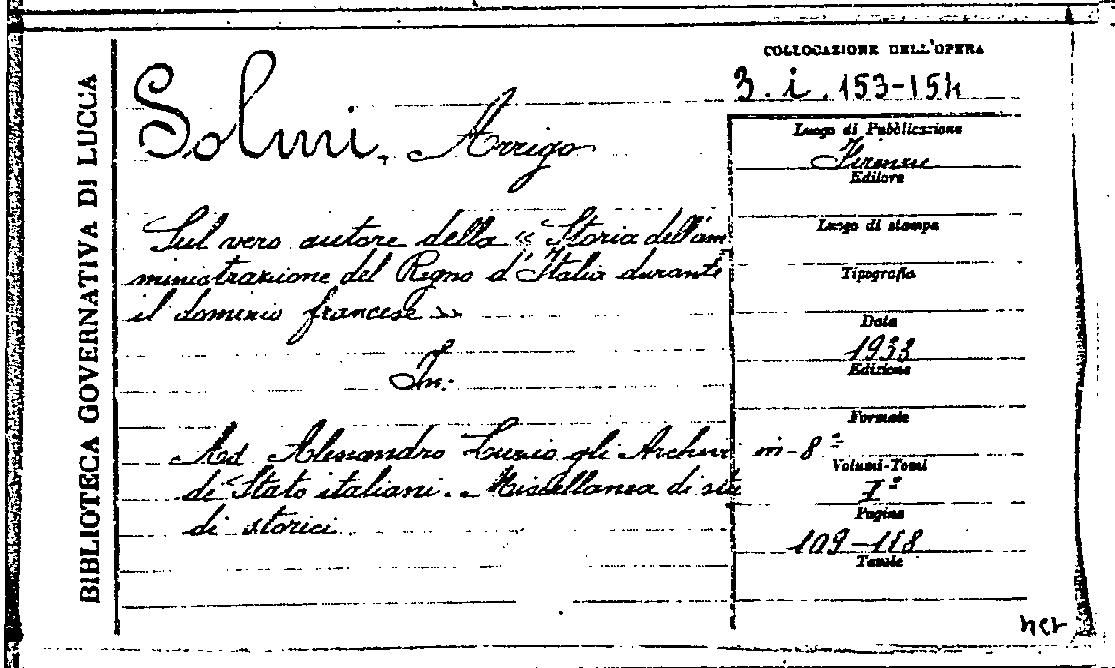 BIBLIOTECA GOVERNATIVA DI LUCCA
COLLOCAZIONE DELL'OPERA
3. i. 153-154
Solmi, Arrigo
Sul vero autore della « Storia dell'am
ministrazione del Regno d'Italia durante
il dominio francese »
In:
Ad Alessandro Luzio gli Archivi
di Stato italiani. Miscellanea di stu
di storici
Luogo di Pubblicazione
Firenze
Editore
Luogo di stampa
Tipografia
Data
1933
Edizione
Formato
in-8º
Volumi-Tomi
Iº
Pagine
109-118
Tavole